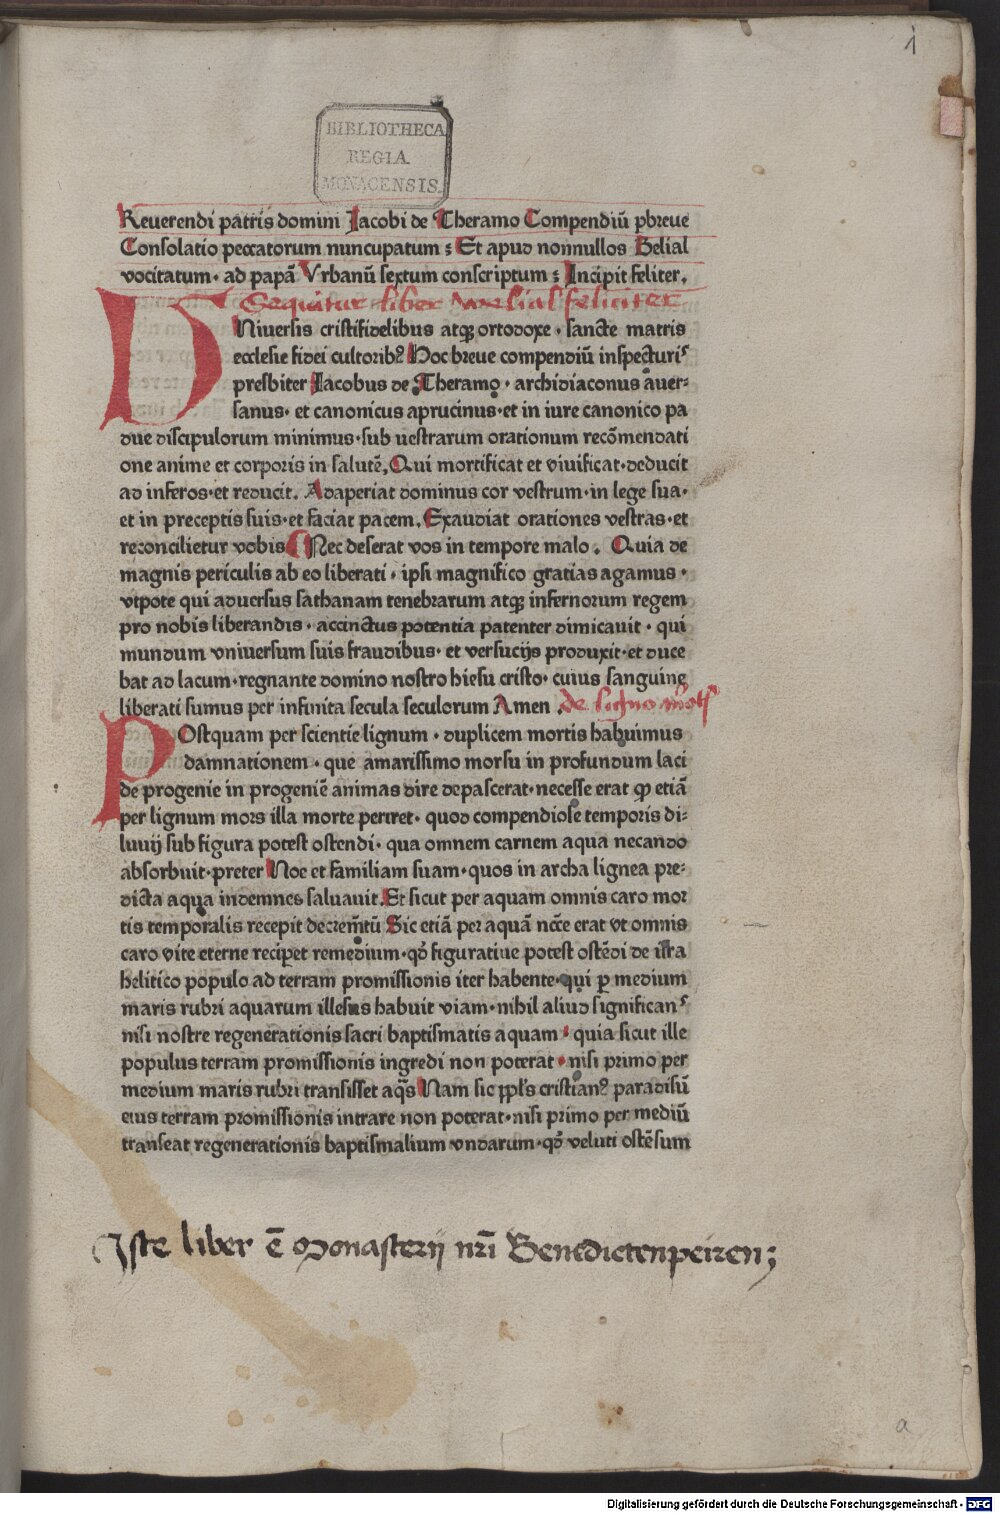 1
BIBLIOTHECA
REGIA
MONACENSIS.
Reuerendi patris domini Jacobi de Theramo Compendiū pbreue
Consolatio peccatorum nuncupatum : Et apud nonnullos Belial
vocitatum · ad papā Vrbanū sextum conscriptum : Incipit feliter .
Sequitur liber feliciter
UNiuersis cristifidelibus atqȝ ortodoxe · sancte matris
ecclesie fidei cultoribꝰ Hoc breue compendiū inspecturiˢ
presbiter Jacobus de Theramo · archidiaconus auer-
sanus · et canonicus aprucinus · et in iure canonico pa
due discipulorum minimus · sub uestrarum orationum recōmendati
one anime et corporis in salutē . Qui mortificat et viuificat · deducit
ad inferos · et reducit . Adaperiat dominus cor vestrum · in lege sua ·
et in preceptis suis · et faciat pacem . Exaudiat orationes vestras · et
reconcilietur vobis Nec deserat vos in tempore malo . Quia de
magnis periculis ab eo liberati · ipsi magnifico gratias agamus ·
vtpote qui aduersus sathanam tenebrarum atqȝ infernorum regem
pro nobis liberandis · accinctus potentia patenter dimicauit · qui
mundum vniuersum suis fraudibus · et versucijs produxit · et duce
bat ad lacum · regnante domino nostro hiesu cristo · cuius sanguine
liberati sumus per infinita secula seculorum Amen . de ligno
POstquam per scientie lignum · duplicem mortis habuimus
damnationem · que amarissimo morsu in profundum laci
de progenie in progeniē animas dire depascerat · necesse erat ꝙ etiā
per lignum mors illa morte periret · quod compendiose temporis di-
luuij sub figura potest ostendi · qua omnem carnem aqua necando
absorbuit · preter Noe et familiam suam · quos in archa lignea pre-
dicta aqua indemnes saluauit . Et sicut per aquam omnis caro mor
tis temporalis recepit decremētū Sic etiā per aquā ncc̄e erat vt omnis
caro vite eterne reciperet remedium · qđ figuratiue potest ostēdi de isra
helitico populo ad terram promissionis iter habente · qui ꝑ medium
maris rubri aquarum illesus habuit viam · nihil aliud significanˢ
nisi nostre regenerationis sacri baptismatis aquam · quia sicut ille
populus terram promissionis ingredi non poterat · nisi primo per
medium maris rubri transisset aq̄s Nam sic ppl̄s cristianꝰ paradisū
eius terram promissionis intrare non poterat · nisi primo per mediū
transeat regenerationis baptismalium vndarum · qđ veluti ostēsum
Iste liber ē Monasterij nr̄i Benedictenpeiren ;
a
Digitalisierung gefördert durch die Deutsche Forschungsgemeinschaft - DFG